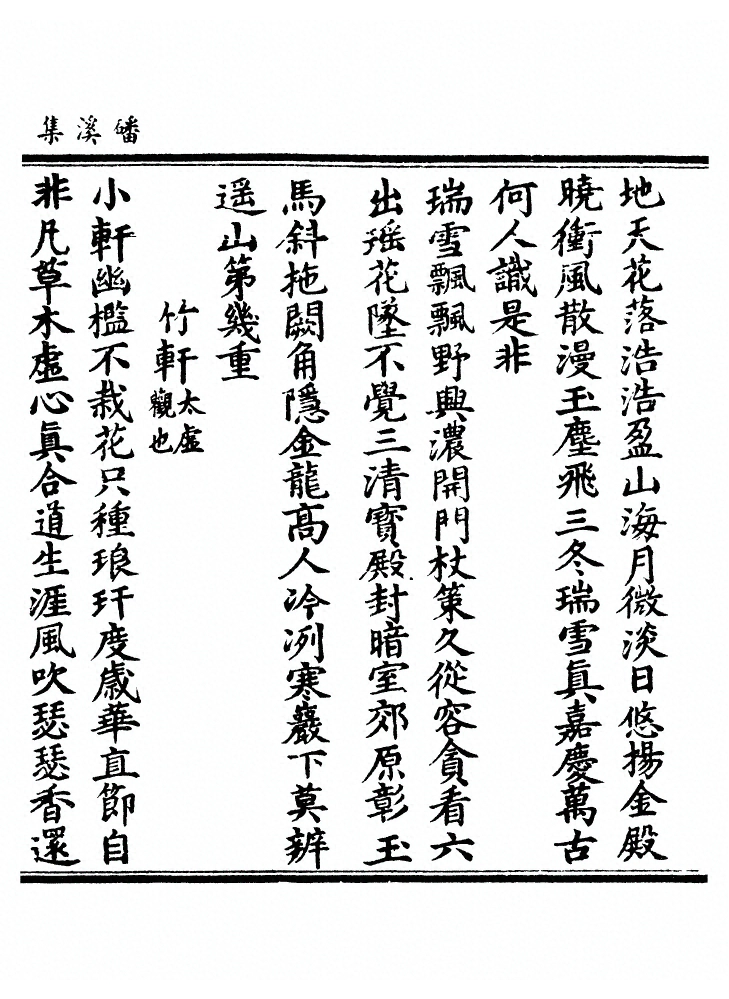 磻溪集
地天花落浩浩盈山海月微淡日悠揚金殿
曉衝風散漫玉塵飛三冬瑞雪眞嘉慶萬古
何人識是非
瑞雪飄飄野興濃開門杖策久從容貪看六
出瑶花墜不覺三清寶殿封暗室郊原彰玉
馬斜拖闕角隱金龍高人冷冽寒巖下莫辨
遥山第幾重
竹軒太虚觀也
小軒幽檻不栽花只種琅玕度歲華直節自
非凡草木虛心眞合道生涯風吹瑟瑟香還